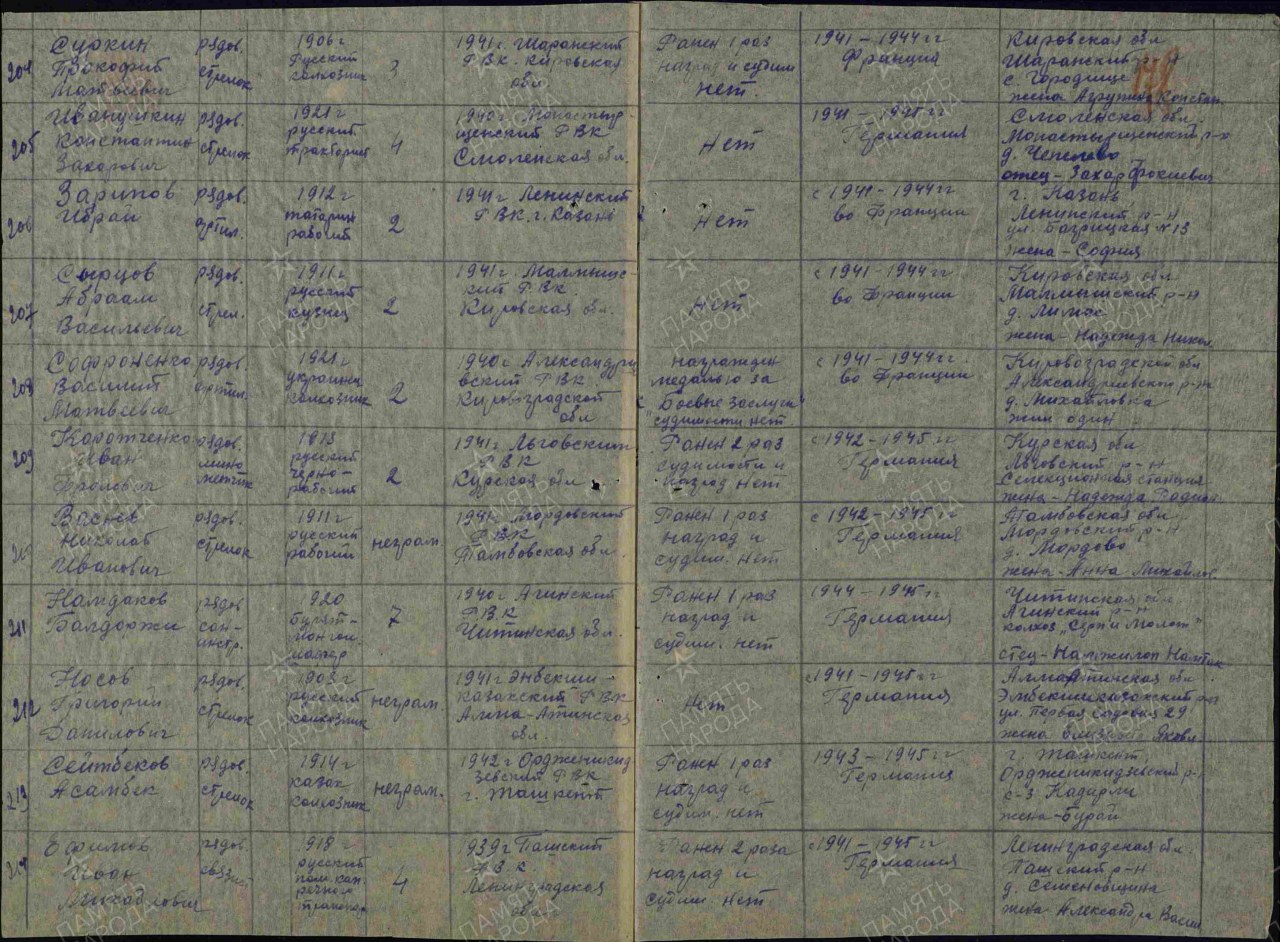 204
Суркин
Прокофий
Матвеевич
рядов.
стрелок
1906 г
русский
колхозник
3
1941 г. Шаранский
РВК. Кировская
обл.
Ранен 1 раз
наград и судим
нет.
1941 - 1944 гг
Франция
Кировская обл
Шаранский р-н
с Городище
жена Агрупина Констан.
205
Иванушкин
Константин
Захарович
рядов.
стрелок
1921 г
русский
тракторист
4
1940 г. Монастыр-
щенский РВК
Смоленская обл.
Нет
1941 - 1945 гг
Германия
Смоленская обл.
Монастырщенский р-н
д. Чепелево
отец - Захар Фокиевич
206
Зарипов
Ибраи
рядов.
артил.
1912 г
татарин
рабочий
2
1941 г Ленинский
РВК. г. Казань
Нет
с 1941 - 1944 гг
во Франции
г. Казань
Ленинский р-н
ул. Багрицкая № 13
жена - София
207
Сырцов
Абраам
Васильевич
рядов.
стрел.
1911 г.
русский
кузнец
2
1941 г. Малмыжс-
кий РВК.
Кировская обл.
Нет
с 1941 - 1944 гг
во Франции
Кировская обл
Малмыжский р-н
д.
жена - Надежда Никол.
208
Софроненко
Василий
Матвеевич
рядов.
артил.
1921 г
украинец
колхозник
2
1940 г. Александри
вский РВК.
Кировоградской
обл
награжден
медалью за
"Боевые заслуги"
судимости нет
с 1941 - 1944 гг
во Франции
Кировоградской обл
Александриевский р-н
д. Михайловка
жил один
209
Коротченко
Иван
Фролович
рядов.
мино-
метчик
1913
русский
черно-
рабочий
2
1941 г. Льговский
РВК
Курская обл.
Ранен 2 раз
судимости и
наград нет
с 1942 - 1945 гг
Германия
Курская обл
Льговский р-н
Селекционная станция
жена - Надежда Родион.
Васнев
Николай
Иванович
рядов.
стрелок
1911 г
русский
рабочий
неграм.
1941 г. Мордовский
РВК
Тамбовская обл.
Ранен 1 раз
наград и
судим. нет
с 1942 - 1945 гг
Германия
Тамбовская обл
Мордовский р-н
д. Мордово
жена - Анна Михайлов.
211
Намдаков
Балдоржи
рядов
сан-
инстр.
1920
бурят-
монгол
7
1940 г Агинский
РВК
Читинская обл.
Ранен 1 раз
наград и
судим. нет
1944 - 1945 гг
Германия
Читинская обл
Агинский р-н
колхоз "Серп и Молот"
отец - Намжилов
212
Носов
Григорий
Данилович
рядов.
стрелок
1903 г
русский
колхозник
неграм.
1941 г Энбекши-
казахский РВК
Алма-Атинская
обл.
Нет
с 1941 - 1945 гг
Германия
Алма Атинская обл
Энбекшиказахский р-н
ул. Первая садовая 29
жена Елизавета Яковл.
213
Сейтбеков
Асамбек
рядов.
стрелок
1914 г
казак
колхозник
неграм.
1942 г Орджоникид
зевский РВК
г. Ташкент
Ранен 1 раз
наград и
судим. нет
1943 - 1945 гг
Германия
г. Ташкент,
Орджоникидзевский р-
с-з Кадирли
жена - Бурай
214
Ефимов
Иван
Михайлович
рядов.
связист
918 г
русский
4
939 г Пашский
РВК.
Ленинградская
обл.
Ранен 2 раза
наград и
судим нет
с 1941 - 1945 г
Германия
Ленинградская обл.
Пашский р-н
д. Семеновщина
жена - Александра Васил
ПАМЯТЬ
НАРОДА